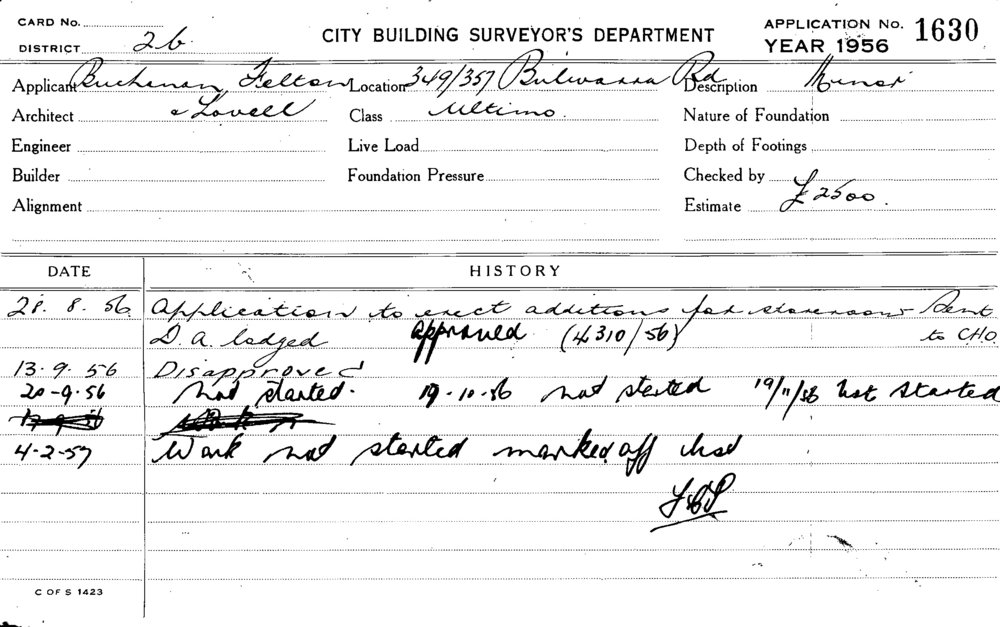 CARD No.
DISTRICT 26
CITY BUILDING SURVEYOR'S DEPARTMENT
APPLICATION No. 1630
YEAR 1956
Applicant Buchanan, Felton Location 349/357 Bulwarra Rd Description Minor
Architect & Lovell Class Ultimo. Nature of Foundation
Engineer Live Load Depth of Footings
Builder Foundation Pressure Checked by
Alignment Estimate £2500.
DATE HISTORY
28. 8. 56. Application to erect additions for storeroom Sent
D.A. lodged approved (4310/56) to CHO.
13. 9. 56 Disapproved
20-9-56 Not started. 19-10-56 Not started 19/11/56 Not Started
4-2-57 Work not started marked off list
C OF S 1423